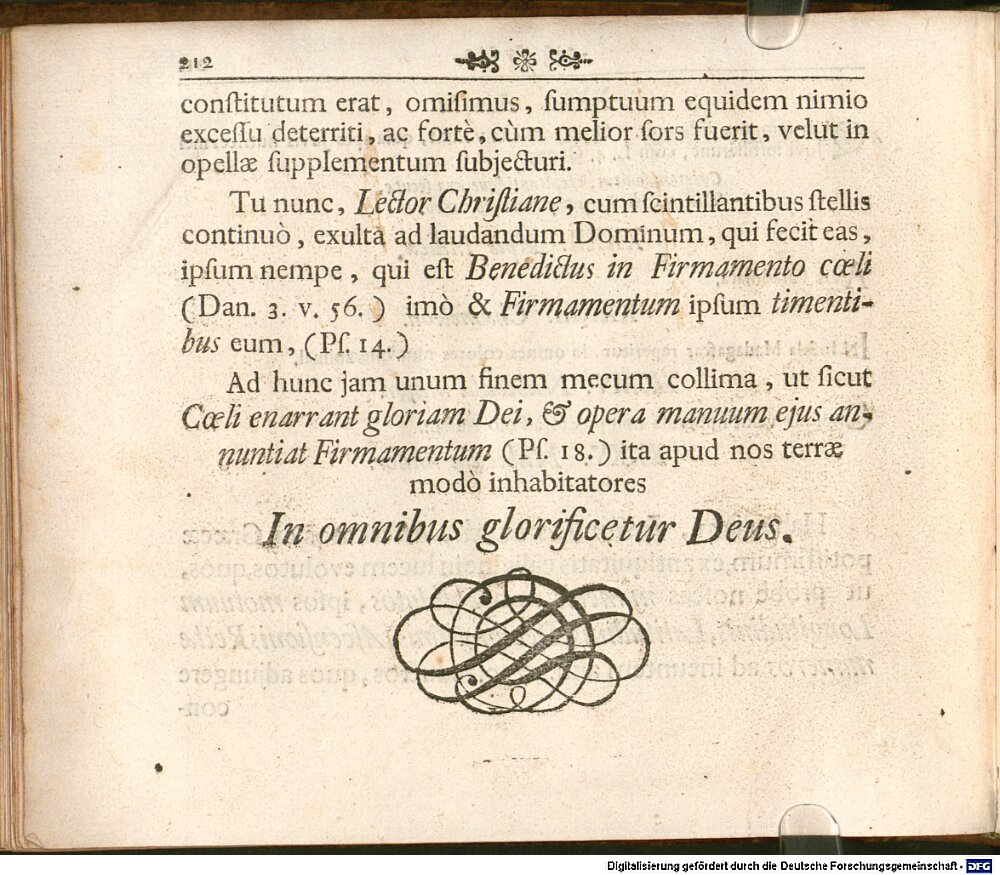 212
conſtitutum erat, omiſimus, ſumptuum equidem nimio
exceſſu deterriti, ac fortè, cùm melior ſors fuerit, velut in
opellæ ſupplementum ſubjecturi.
Tu nunc, Lector Chriſtiane, cum ſcintillantibus ſtellis
continuò, exulta ad laudandum Dominum, qui fecit eas,
ipſum nempe, qui eſt Benedictus in Firmamento cœli
(Dan. 3. v. 56.) imò & Firmamentum ipſum timenti-
bus eum, (Pſ. 14.)
Ad hunc jam unum finem mecum collima, ut ſicut
Cœli enarrant gloriam Dei, & opera manuum ejus an-
nuntiat Firmamentum (Pſ. 18.) ita apud nos terræ
modò inhabitatores
In omnibus glorificetur Deus.
Digitalisierung gefördert durch die Deutsche Forschungsgemeinschaft - DFG